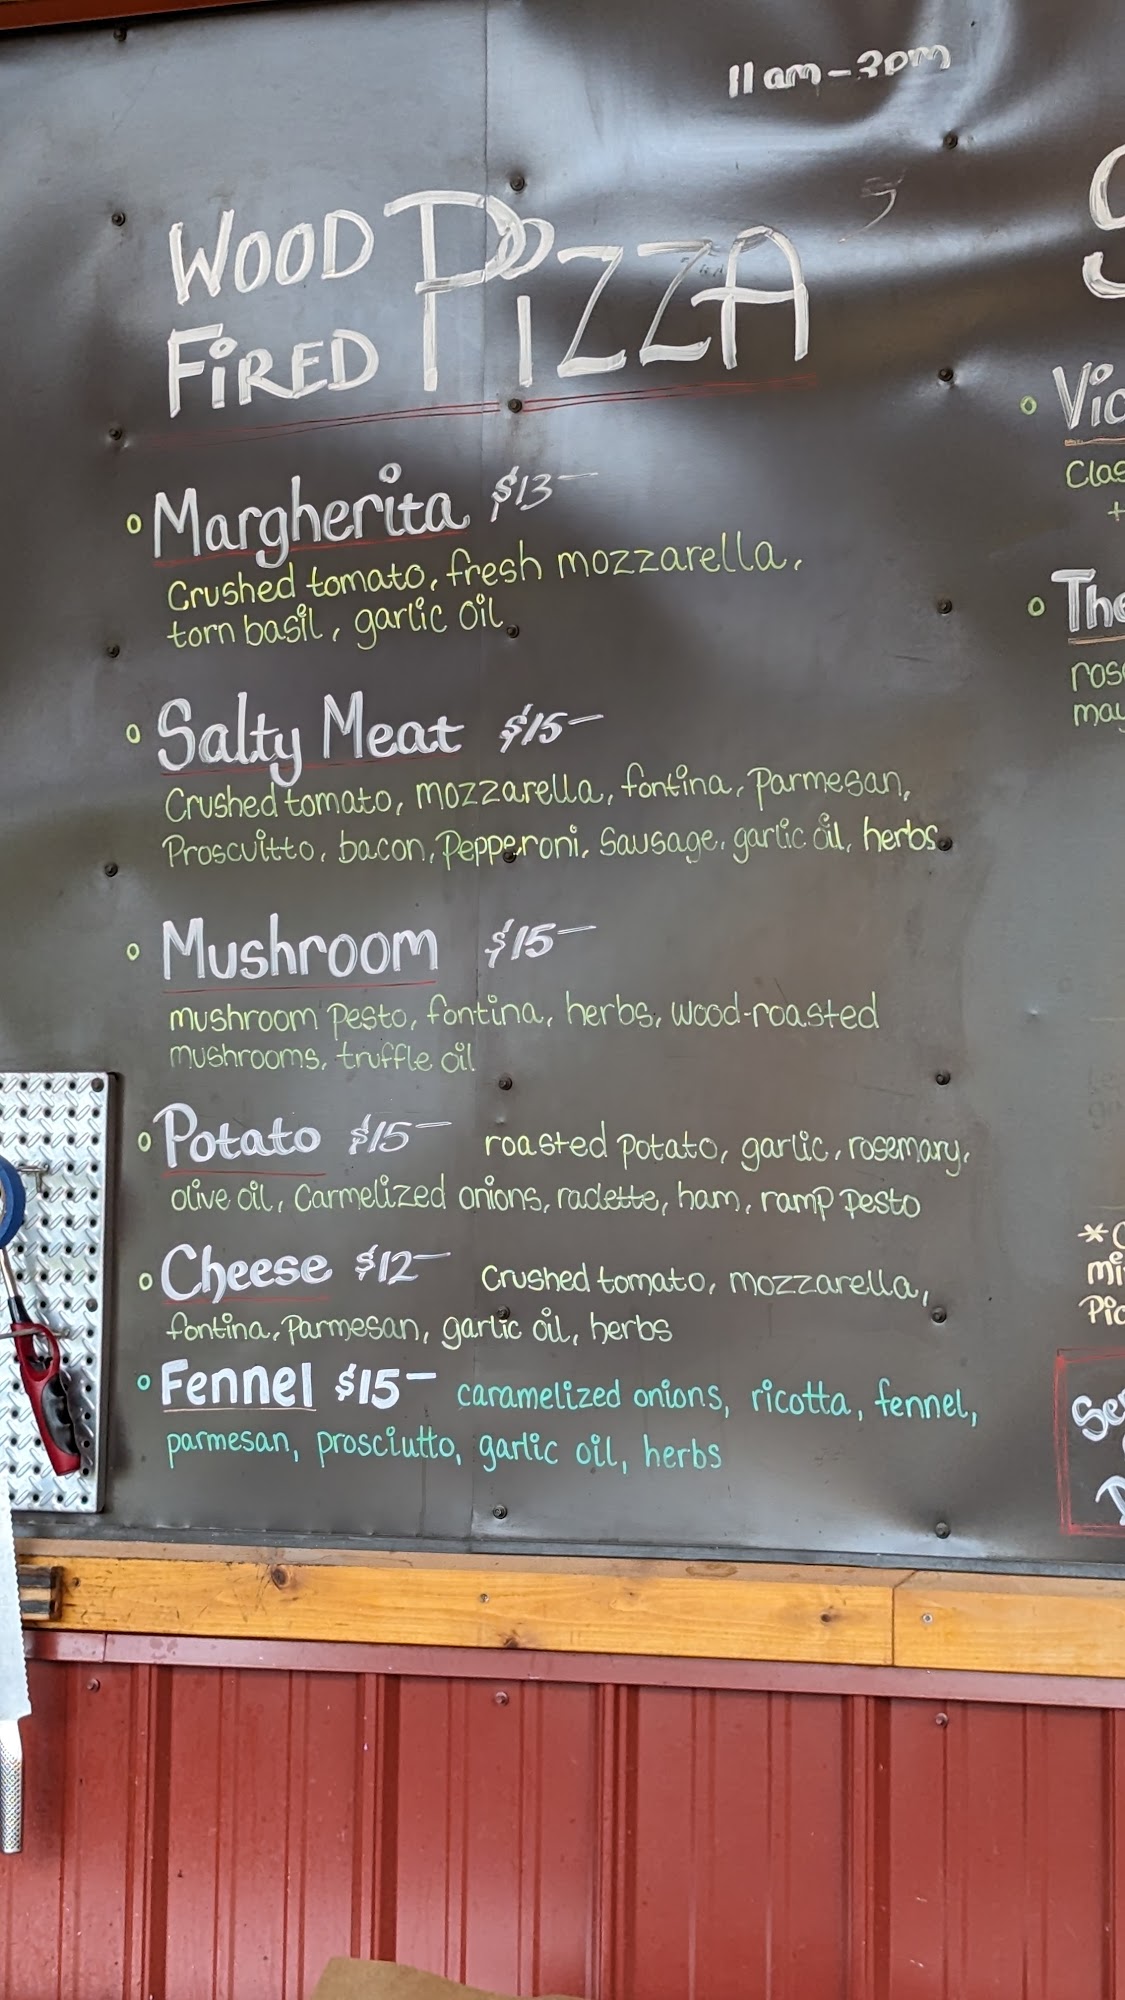 11am-3pm
WOOD PIZZA
FIRED
Margherita $13-
Crushed tomato, fresh mozzarella,
torn basil, garlic oil
Salty Meat $15-
Crushed tomato, mozzarella, fontina, Parmesan,
Proscuitto, bacon, Pepperoni, Sausage, garlic oil, herbs
Mushroom $15-
mushroom Pesto, fontina, herbs, wood-roasted
mushrooms, truffle oil
Potato $15- roasted potato, garlic, rosemary,
olive oil, Carmelized onions, raclette, ham, ramp pesto
Cheese $12- Crushed tomato, mozzarella,
fontina, Parmesan, garlic oil, herbs
Fennel $15- caramelized onions, ricotta, fennel,
parmesan, prosciutto, garlic oil, herbs